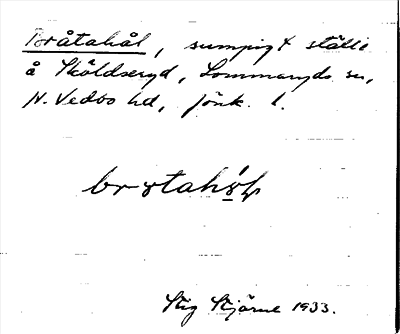 Bråtahål, sumpigt ställe
å Sköldseryd, Lommaryds sn,
N. Vedbo hd, Jönk. l.
Stig Stjärne 1933.